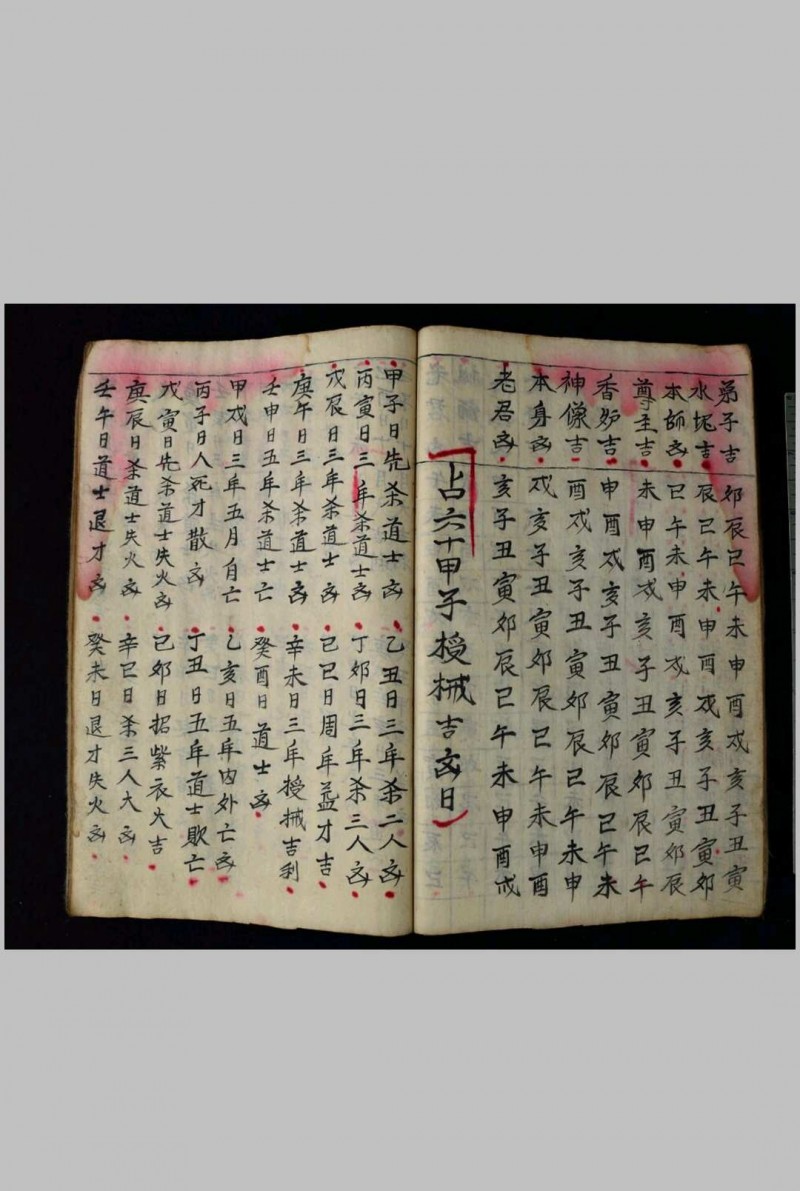 弟子吉 卯辰巳午未申酉戍亥子丑寅
水坭吉 辰巳午未申酉戍亥子丑寅卯
本師㐫 巳午未申酉戍亥子丑寅卯辰
尊主吉 未申酉戍亥子丑寅卯辰巳午
香炉吉 申酉戍亥子丑寅卯辰巳午未
神像吉 酉戍亥子丑寅卯辰巳午未申
本身㐫 戍亥子丑寅卯辰巳午未申酉
老君㐫 亥子丑寅卯辰巳午未申酉戍
占六十甲子授械吉㐫日
甲子日先杀道士㐫 乙丑日三年杀二人㐫
丙寅日三年杀道士㐫 丁卯日三年杀三人㐫
戊辰日三年杀道士㐫 己巳日周年益才吉
庚午日三年杀道士㐫 辛未日三年授械吉利
壬申日五年杀道士亡 癸酉日道士㐫
甲戍日三年五月自亡 乙亥日五年内外亡㐫
丙子日人死才散㐫 丁丑日五年道士敗亡
戊寅日先杀道士失火㐫 己卯日招紫衣大吉
庚辰日杀道士失火㐫 辛巳日杀三人大㐫
壬午日道士退才㐫 癸未日退才失火㐫